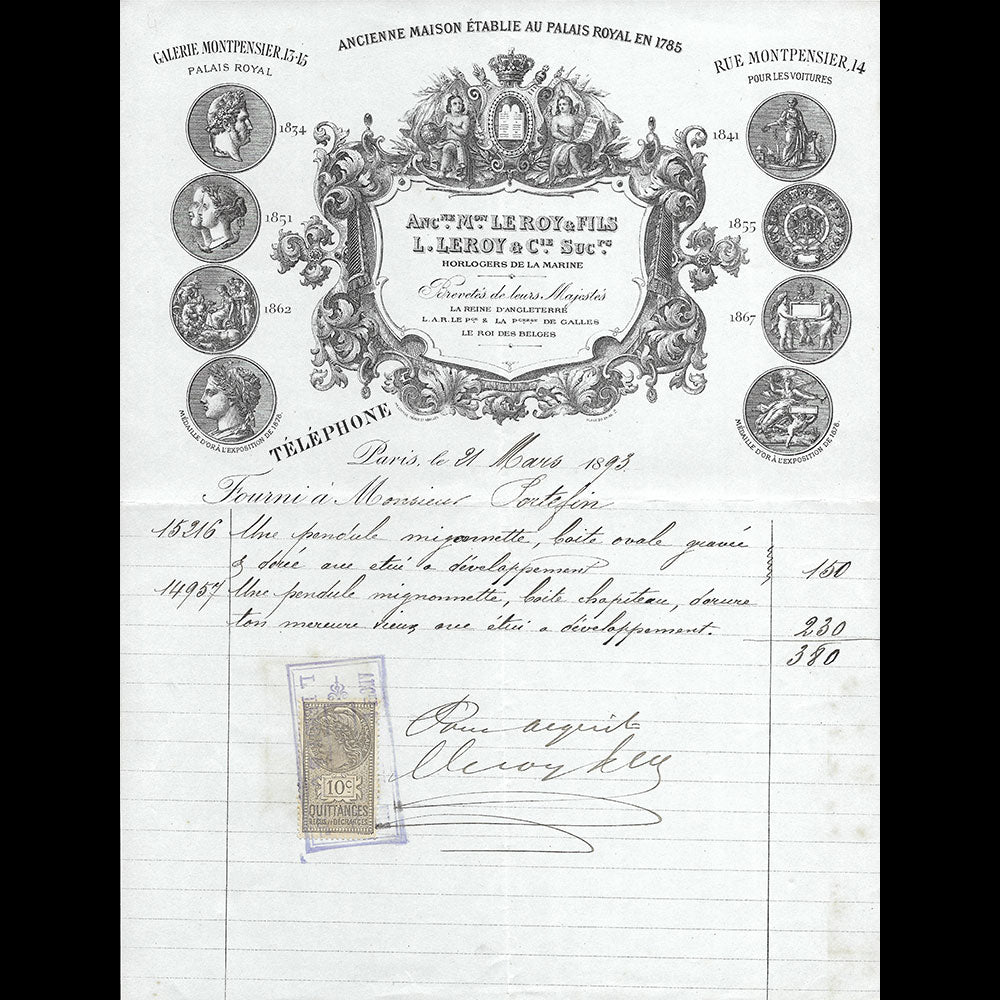 ANCIENNE MAISON ÉTABLIE AU PALAIS ROYAL EN 1785
GALERIE MONTPENSIER, 13-15
PALAIS ROYAL
RUE MONTPENSIER, 14
POUR LES VOITURES
1834
1841
1851
1855
1862
1867
MÉDAILLE D'OR À L'EXPOSITION DE 1878.
MÉDAILLE D'OR À L'EXPOSITION DE 1878.
ANCNE MON LEROY & FILS
L. LEROY & CIE SUCRS
HORLOGERS DE LA MARINE
Brevetés de leurs Majestés
LA REINE D'ANGLETERRE
L.A.R. LE PCE & LA PCESSE DE GALLES
LE ROI DES BELGES
TÉLÉPHONE
Paris, le 21 Mars 1893
Fourni à Monsieur Portefin
15216 Une pendule mignonnette, boite ovale gravée
& dorée avec etui a développement 150
14957 Une pendule mignonnette, boite chapiteau, dorure
ton mercure vieux, avec étui a développement. 230
380
Pour acquit
10c
QUITTANCES
REÇUS ET DÉCHARGES